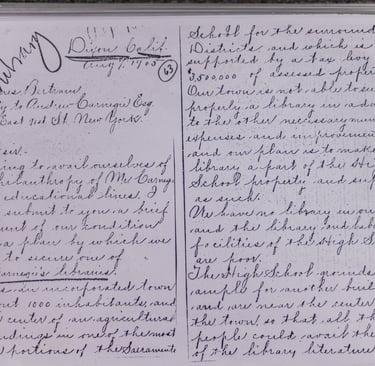 Library
Dixon Calif.
Aug 7, 1905
63
Jas. Bertram,
y to Andrew Carnegie Esq.
East 91st St. New York.
Sir.
ing to avail ourselves of
hilanthropy of Mr Carneg
educational lines. I
submit to you a brief
ment of our condition
a plan by which we
to secure one of
Carnegie's libraries.
an incorporated town
out 1000 inhabitants, and
center of an agricultural
undings in one of the most
portions of the Sacramento
School for the surround
Districts, and which is
supported by a tax levy
3,500,000 of assessed proper
Our town is not able to su
properly a library in add
to the other necessary mun
expenses and improvemen
and our plan is to make
library a part of the Hi
School property and sup
as such.
We have no library in ou
and the library and
facilities of the High S
are poor.
The High School grounds
ample for another buil
and are near the center
the town, so that all th
people could avail the
of the library literature